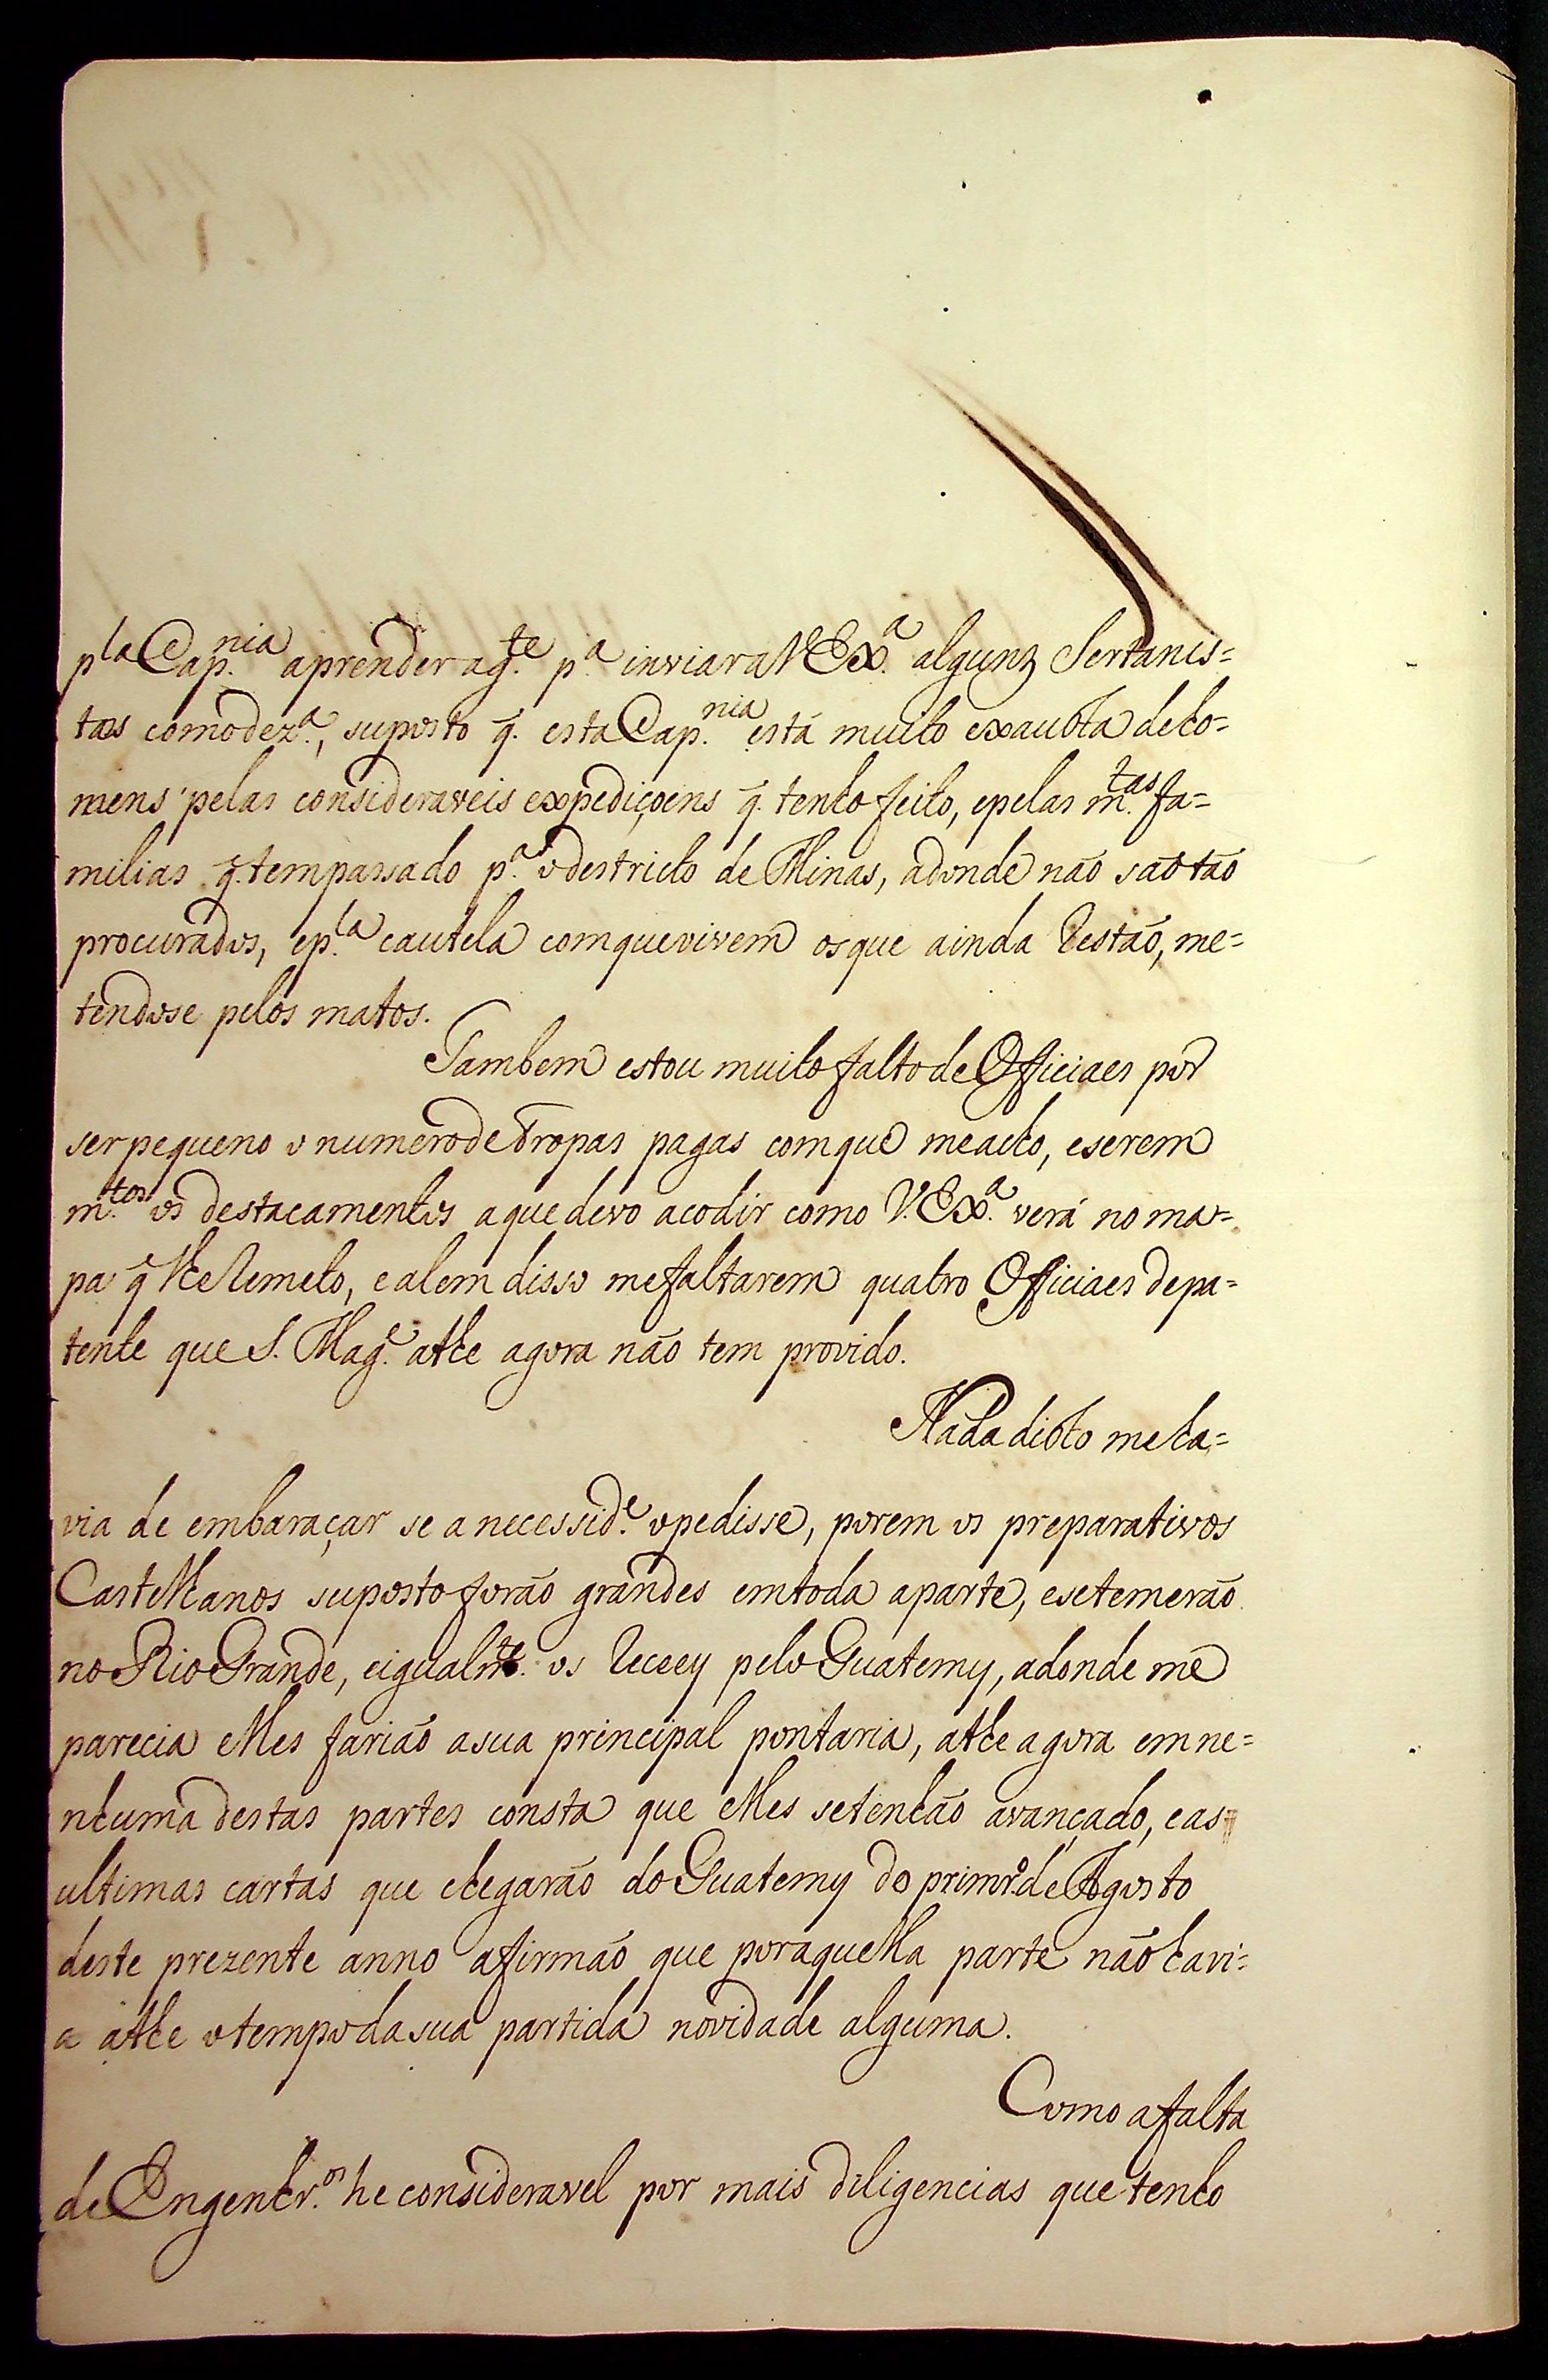 pla Cap.nia aprender a g.te p.a inviar a V Ex.a algunz Sertanis=
tas como dez.a, suposto q̃. esta Cap.nia está muito exausta de ho=
mens pelas consideraveis expediçoens q̃. tenho feito, e pelas m.tas fa=
milias q̃. tem passado p.a o destricto de Minas, adonde não são tão
procurados, e p.la cautela com que vivem os que ainda restão, me=
tendose pelos matos.
Tambem estou muito falto de Officiaes por
ser pequeno o numero de Tropas pagas com que me acho, e serem
m.tos os destacamentos a que devo acodir como V. Ex.a verá no ma=
pa q̃ lhe remeto, e alem disso me faltarem quatro Officiaes de pa=
tente que S. Mag.e athe agora não tem provido.
Nada disto me ha=
via de embaraçar se a necessid.e o pedisse, porem os preparativos
Castelhanos suposto forão grandes em toda a parte, e se temerão
no Rio Grande, e igualm.te os receey pelo Guatemy, adonde me
parecia elles farião a sua principal pontaria, athe agora em ne=
nhuma destas partes consta que elles se tenhão avançado, e as
ultimas cartas que chegarão do Guatemy do primr.o de Agosto
deste prezente anno afirmão que por aquella parte não havi=
a athe o tempo da sua partida novidade alguma.
Como a falta
de Engenhr.os he consideravel por mais diligencias que tenho